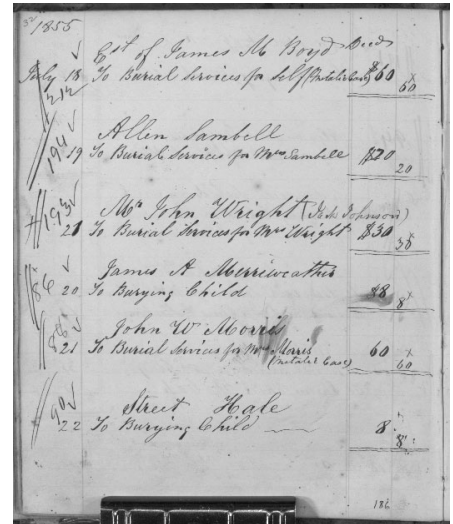 1855
Est of James M Boyd Decd
July 18 To Burial Services for Self (Metalic Case) $60 60
212
Allen Sambell
194
19 To Burial Services for Mrs Sambell $20 20
193
Mr John Wright (Jack Johnson)
21 To Burial Services for Mrs Wright $30 30
James A Merriweather
86
20 To Burying Child $8 8
John W Morris
86
21 To Burial Services for Mrs Morris 60 60
(Metalic Case)
Street Hale
90
22 To Burying Child 8 8
186